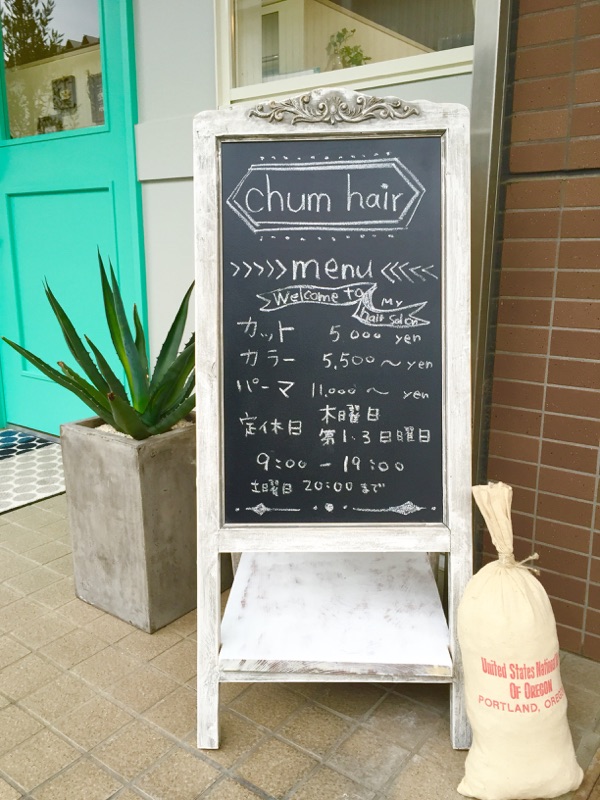 chum hair
>>>>> menu <<<<<
Welcome to
My
hair salon
カット 5000 yen
カラー 5,500〜yen
パーマ 11,000〜yen
定休日 木曜日
第1・3日曜日
9:00-19:00
土曜日 20:00まで
United States National
OF OREGON
PORTLAND, ORE